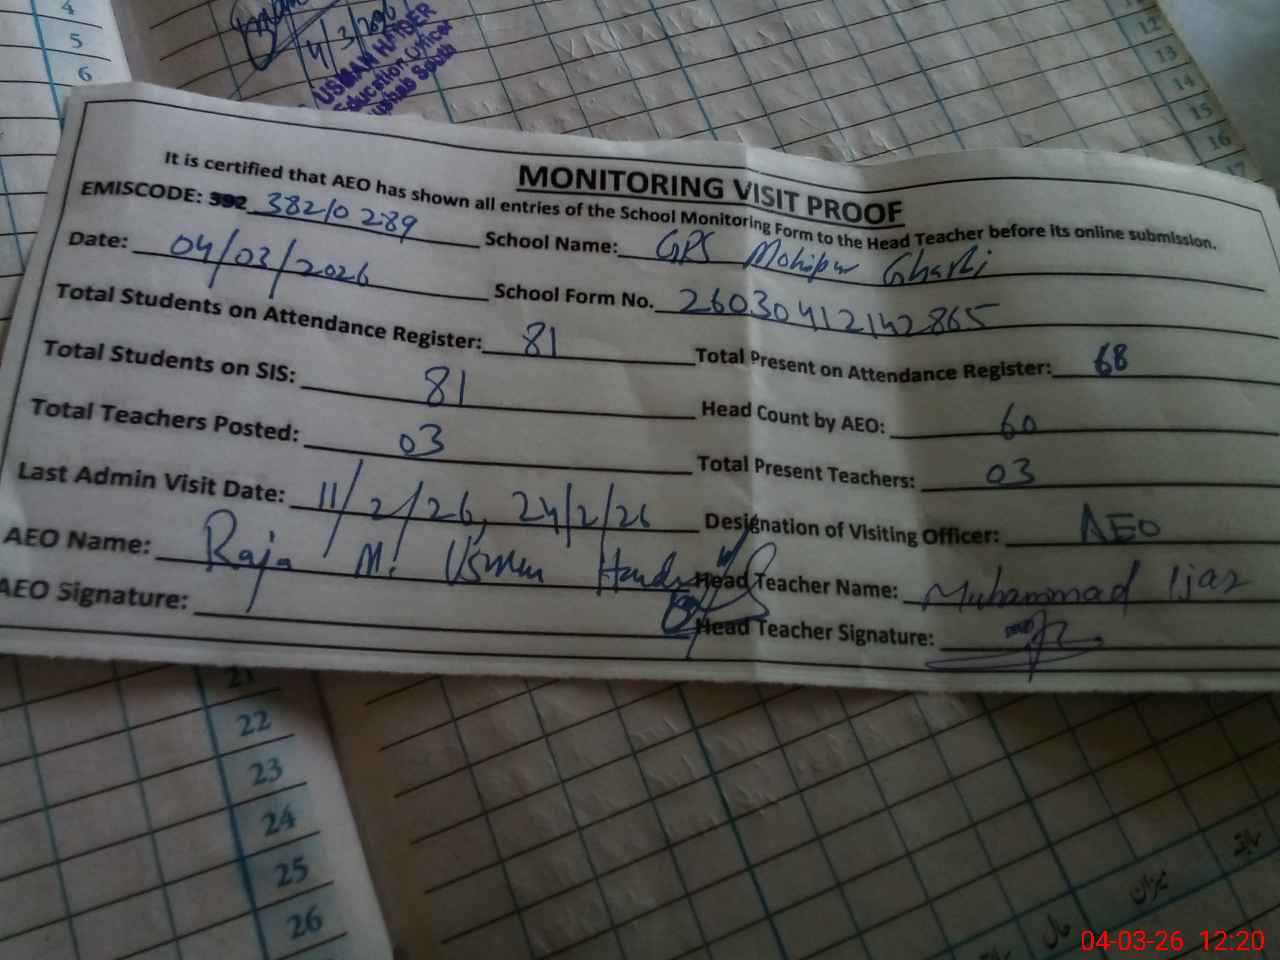 4
5
6
4/3/2026
USMAN HAIDER
Education Officer
12
13
14
15
16
17
MONITORING VISIT PROOF
It is certified that AEO has shown all entries of the School Monitoring Form to the Head Teacher before its online submission.
EMISCODE: 392 38210289 School Name: GPS Mohipur Gharbi
Date: 04/03/2026 School Form No. 26030412142865
Total Students on Attendance Register: 81 Total Present on Attendance Register: 68
Total Students on SIS: 81 Head Count by AEO: 60
Total Teachers Posted: 03 Total Present Teachers: 03
Last Admin Visit Date: 11/2/26, 24/2/26 Designation of Visiting Officer: AEO
AEO Name: Raja M. Usman Head Teacher Name: Muhammad Ijaz
AEO Signature: Head Teacher Signature:
21
22
23
24
25
26
سابقہ
میزان
حال
04-03-26 12:20